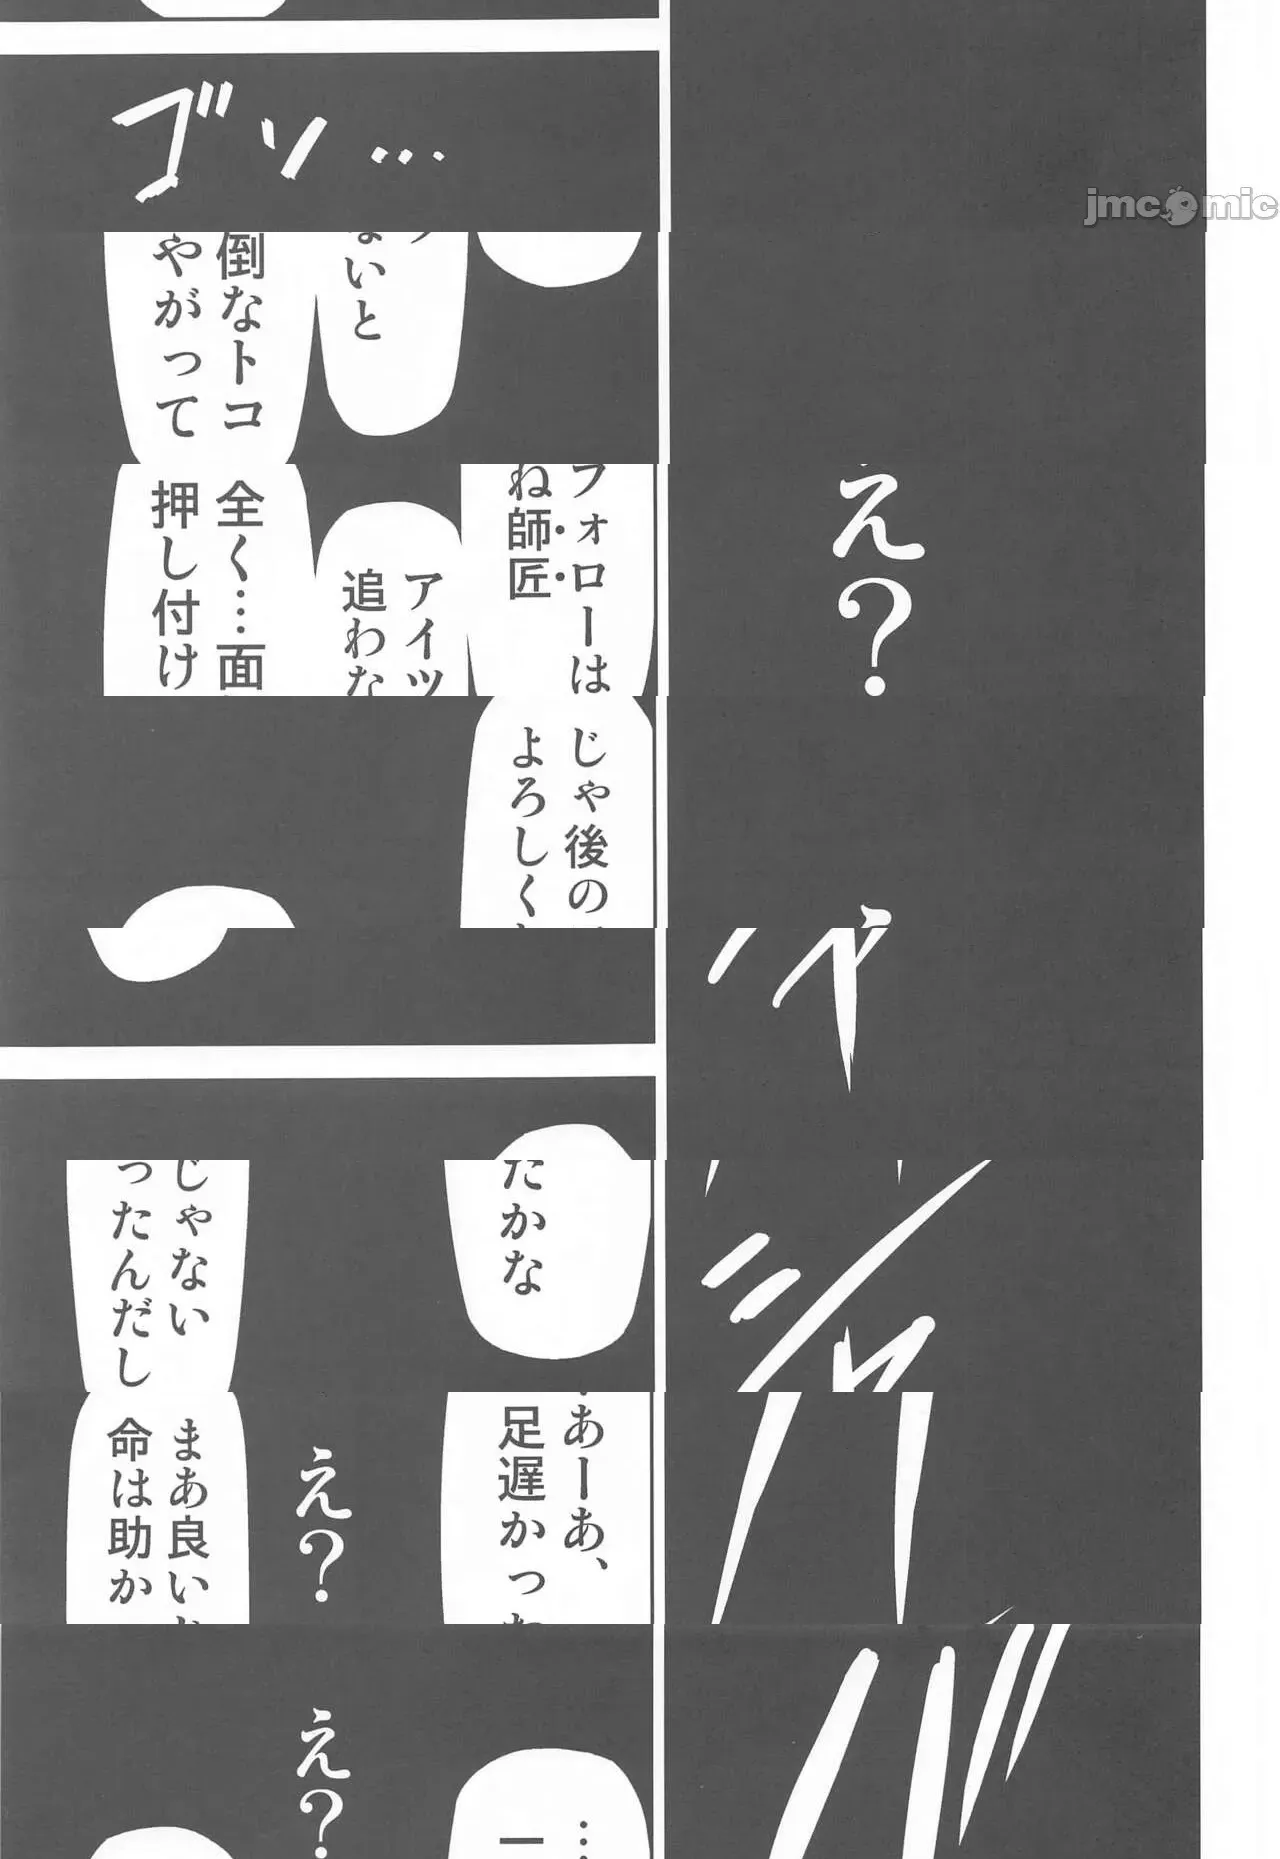 ゴソ…
jmcomic
ないと
倒なトコ
やがって
え？
フォローは
ね師匠
アイツ
追わな
全く…面
押し付け
じゃ後の
よろしく
たかな
じゃない
ったんだし
あーあ、
足遅かった
え？
まあ良い
命は助か
え？
…